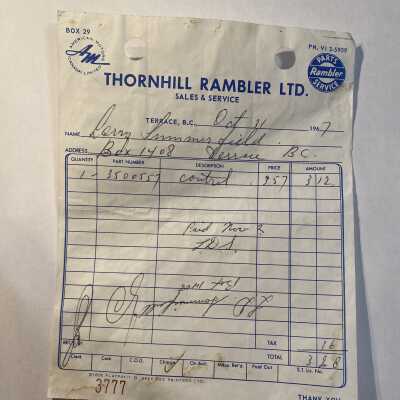 BOX 29
PH. VI 3-5909
AMERICAN MOTORS
CANADA LIMITED
AM
PARTS
Rambler
SERVICE
THORNHILL RAMBLER LTD.
SALES & SERVICE
TERRACE, B.C. Oct 21 1967
NAME Larry Summerfield.
ADDRESS Box 1408 Terrace B.C.
QUANTITY PART NUMBER DESCRIPTION PRICE AMOUNT
1 - 3500557 control 957 3 12
Paid Nov 2
TAX 16
REC'D TOTAL 3 28
Clerk Cash C.O.D. Charge On Acct. Mdse. Ret'd. Paid Out S.T. Lic. No.
3777
THANK YOU